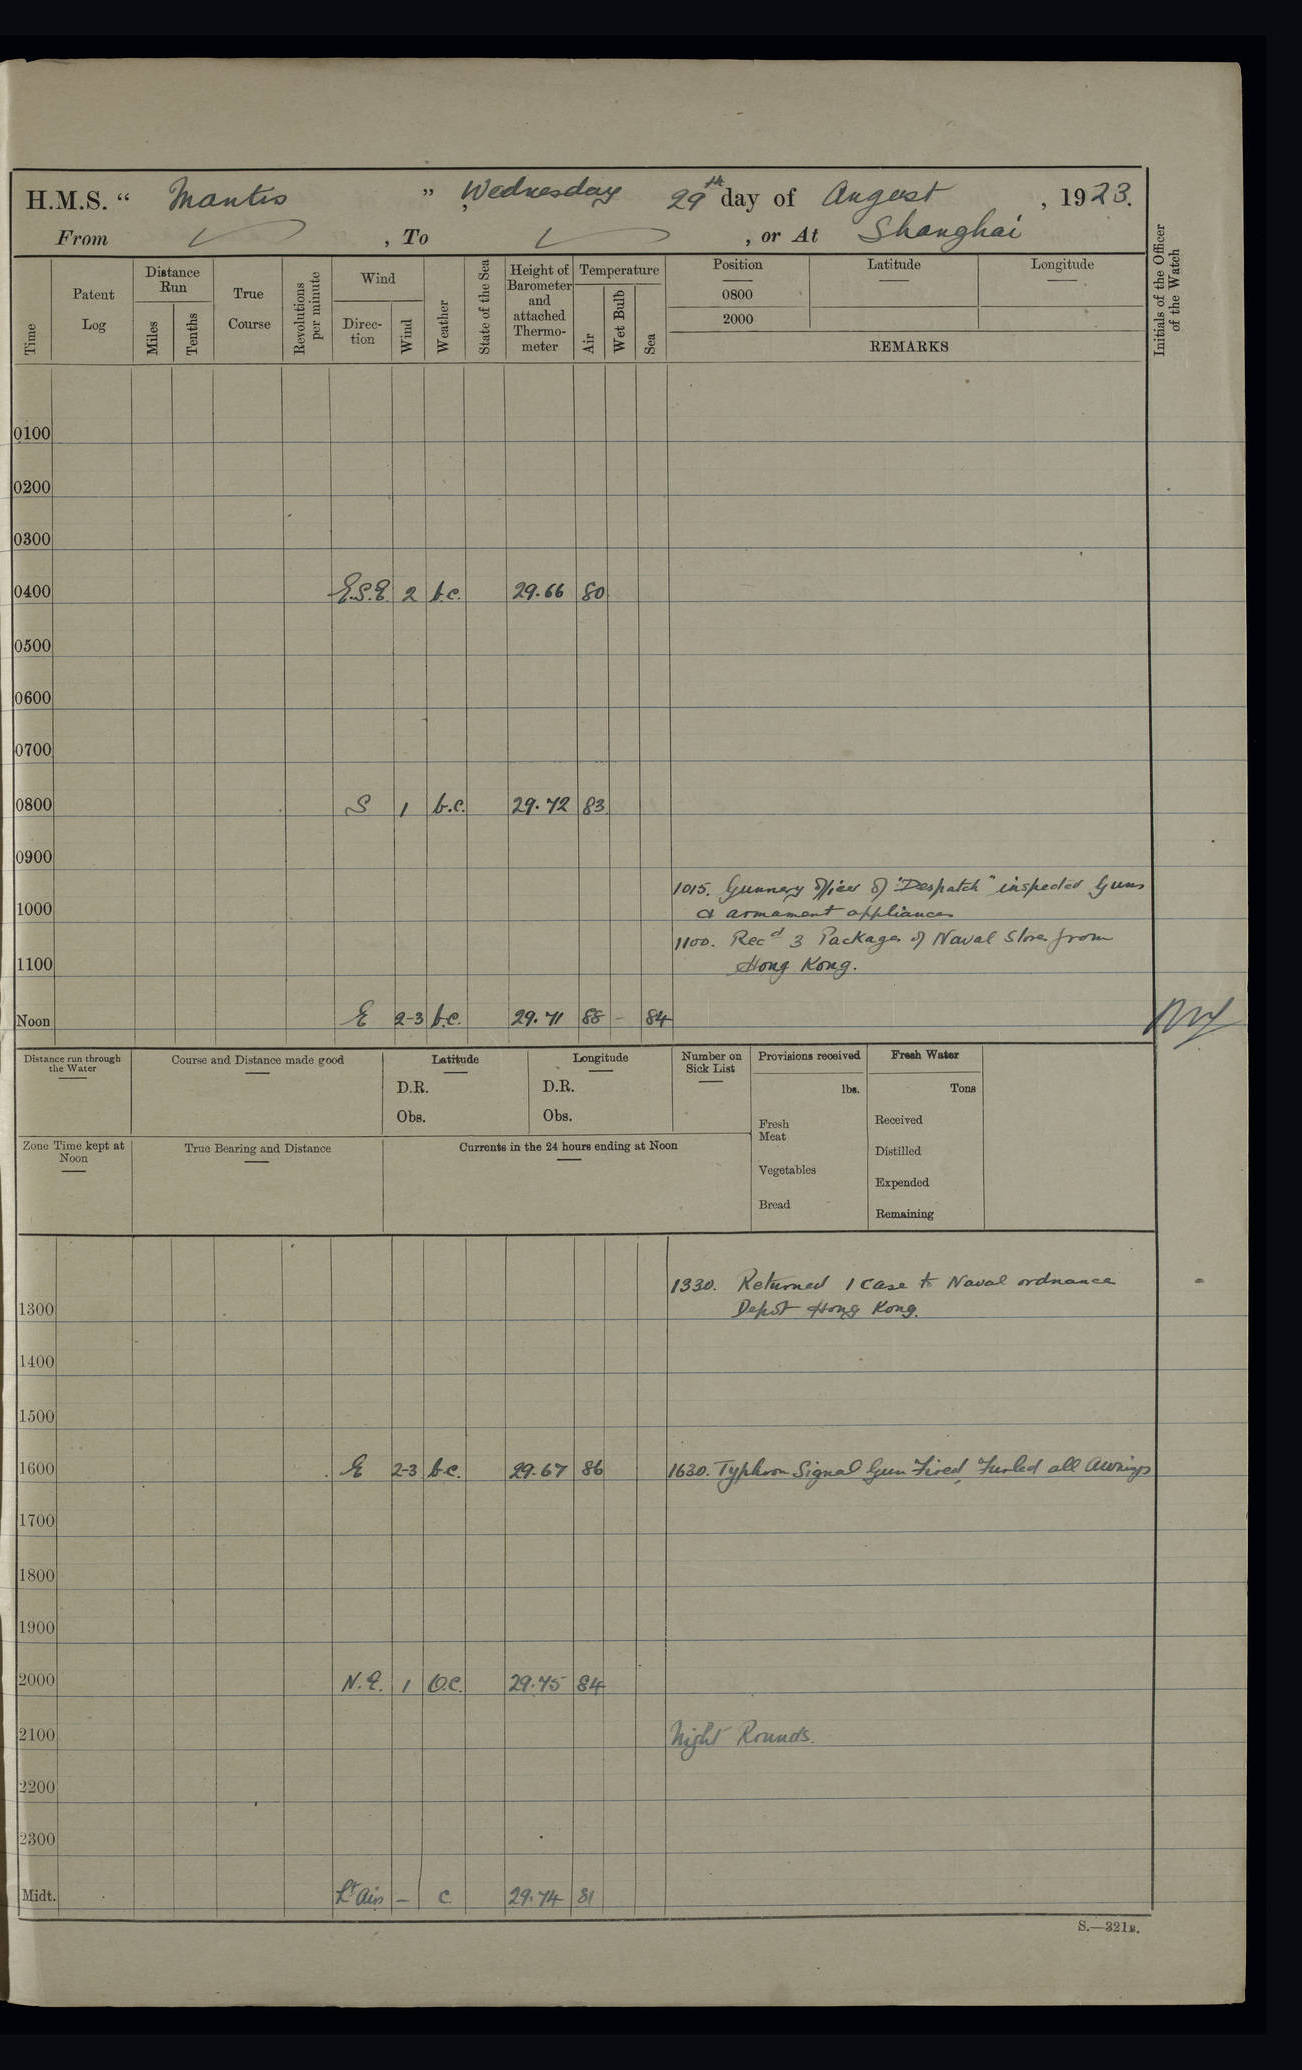 H.M.S. “ Mantis ” , Wednesday 29th day of August , 1923.
From , To , or At Shanghai
Time
Patent Log
Distance Run
Miles
Tenths
True Course
Revolutions per minute
Wind
Direc-tion
Wind
Weather
State of the Sea
Height of Barometer and attached Thermo-meter
Temperature
Air
Wet Bulb
Sea
Position Latitude Longitude
0800
2000
REMARKS
Initials of the Officer of the Watch
0100
0200
0300
0400 E.S.E. 2 b.c. 29.66 80
0500
0600
0700
0800 S 1 b.c. 29.72 83
0900
1015. Gunnery Officer of "Despatch" inspected Guns
1000 & armament appliances
1100. Recd 3 Packages of Naval Stores from
1100 Hong Kong.
Noon E 2-3 b.c. 29.71 88 - 84
Distance run through the Water
Course and Distance made good
Latitude
D.R.
Obs.
Longitude
D.R.
Obs.
Number on Sick List
Provisions received
lbs.
Fresh Meat
Vegetables
Bread
Fresh Water
Tons
Received
Distilled
Expended
Remaining
Zone Time kept at Noon
True Bearing and Distance
Currents in the 24 hours ending at Noon
1330. Returned 1 Case to Naval ordnance
1300 Depot Hong Kong.
1400
1500
1600 E 2-3 b.c. 29.67 86 1630. Typhoon Signal Gun Fired, Furled all Awnings
1700
1800
1900
2000 N.E. 1 O.C. 29.75 84
2100 Night Rounds.
2200
2300
Midt. Lt Airs – c 29.74 81
S.—321B.